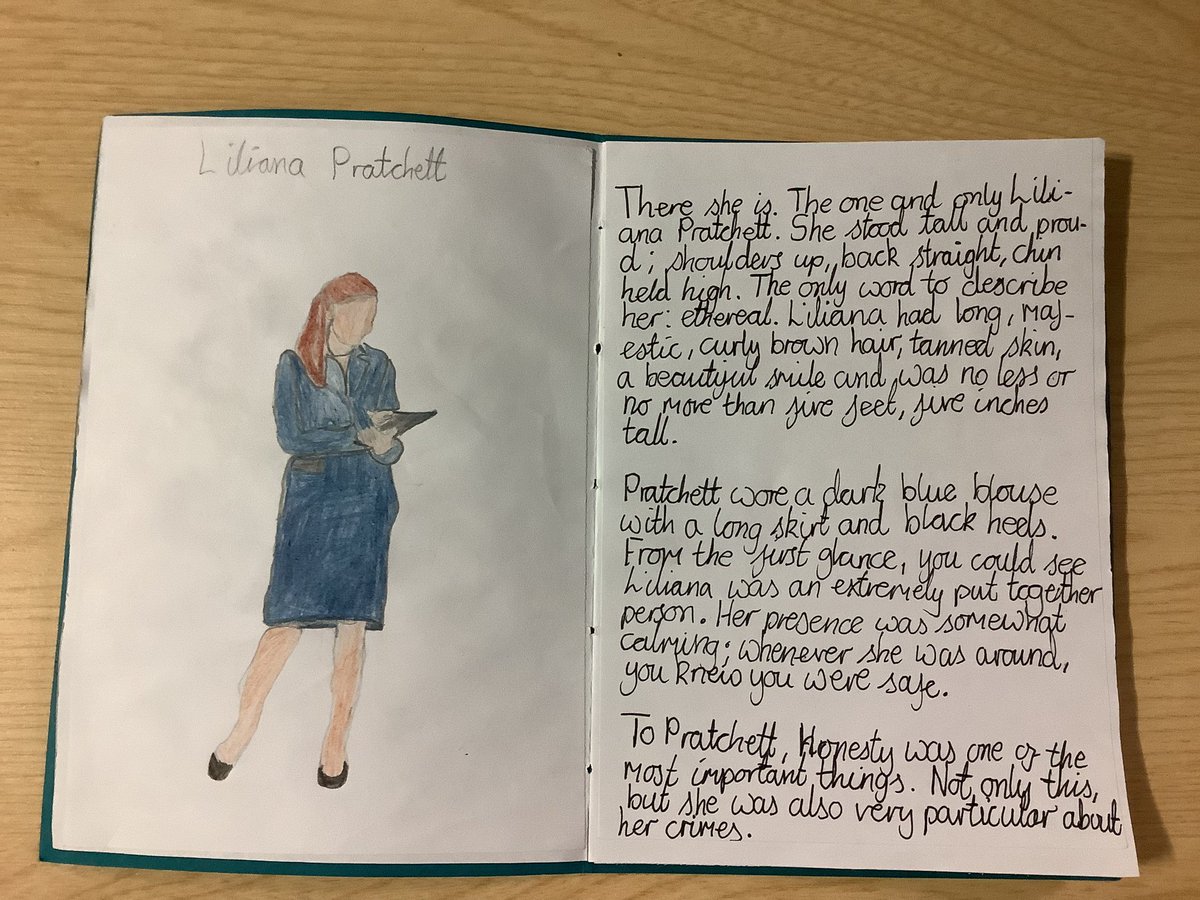 Liliana Pratchett
There she is. The one and only Lili-
ana Pratchett. She stood tall and prou-
d; shoulders up, back straight, chin
held high. The only word to describe
her: ethereal. Liliana had long, maj-
estic, curly brown hair, tanned skin,
a beautiful smile and was no less or
no more than five feet, five inches
tall.
Pratchett wore a dark blue blouse
with a long skirt and black heels.
From the first glance, you could see
Liliana was an extremely put together
person. Her presence was somewhat
calming; whenever she was around,
you knew you were safe.
To Pratchett, Honesty was one of the
most important things. Not only this,
but she was also very particular about
her crimes.